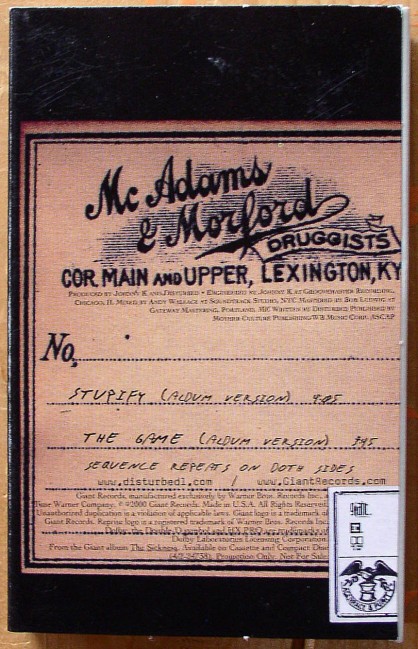 Mc Adams
& Morford
DRUGGISTS
COR. MAIN AND UPPER, LEXINGTON, KY
PRODUCED BY JOHNNY K AND DISTURBED • ENGINEERED BY JOHNNY K AT GROOVEMASTER RECORDING,
CHICAGO, IL MIXED BY ANDY WALLACE AT SOUNDTRACK STUDIO, NYC MASTERED BY BOB LUDWIG AT
GATEWAY MASTERING, PORTLAND, ME WRITTEN BY DISTURBED; PUBLISHED BY
MOTHER CULTURE PUBLISHING/WB MUSIC CORP. ASCAP
No.
STUPIFY (ALBUM VERSION)
THE GAME (ALBUM VERSION) 3:45
SEQUENCE REPEATS ON BOTH SIDES
www.disturbed1.com / www.GiantRecords.com
Giant Records, manufactured exclusively by Warner Bros. Records Inc., a
Time Warner Company. ℗ ©2000 Giant Records. Made in U.S.A. All Rights Reserved.
Unauthorized duplication is a violation of applicable laws. Giant logo is a trademark of
Giant Records. Reprise logo is a registered trademark of Warner Bros. Records Inc.
Dolby, the Double-D symbol and HX PRO are trademarks of
Dolby Laboratories Licensing Corporation.
From the Giant album The Sickness. Available on Cassette and Compact Disc
(4/2-24738). Promotion Only. Not For Sale.